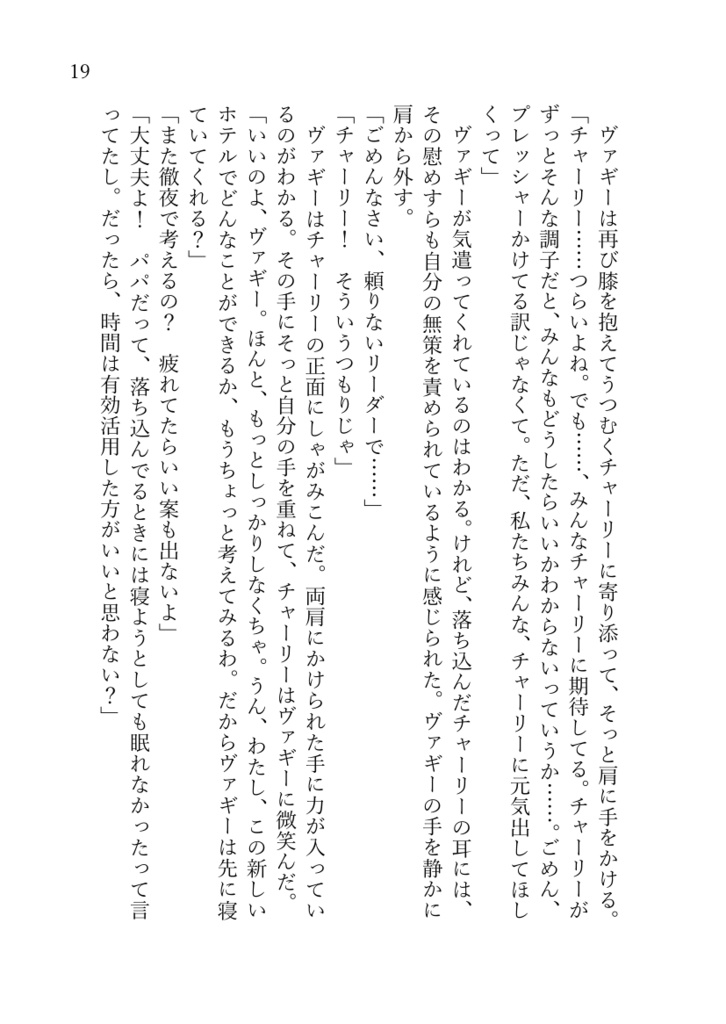 19
ヴァギーは再び膝を抱えてうつむくチャーリーに寄り添って、そっと肩に手をかける。
「チャーリー……つらいよね。でも……、みんなチャーリーに期待してる。チャーリーが
ずっとそんな調子だと、みんなもどうしたらいいかわからないっていうか……。ごめん、
プレッシャーかけてる訳じゃなくて。ただ、私たちみんな、チャーリーに元気出してほし
くって」
ヴァギーが気遣ってくれているのはわかる。けれど、落ち込んだチャーリーの耳には、
その慰めすらも自分の無策を責められているように感じられた。ヴァギーの手を静かに
肩から外す。
「ごめんなさい、頼りないリーダーで……」
「チャーリー！　そういうつもりじゃ」
ヴァギーはチャーリーの正面にしゃがみこんだ。両肩にかけられた手に力が入ってい
るのがわかる。その手にそっと自分の手を重ねて、チャーリーはヴァギーに微笑んだ。
「いいのよ、ヴァギー。ほんと、もっとしっかりしなくちゃ。うん、わたし、この新しい
ホテルでどんなことができるか、もうちょっと考えてみるわ。だからヴァギーは先に寝
ていてくれる？」
「また徹夜で考えるの？　疲れてたらいい案も出ないよ」
「大丈夫よ！　パパだって、落ち込んでるときには寝ようとしても眠れなかったって言
ってたし。だったら、時間は有効活用した方がいいと思わない？」